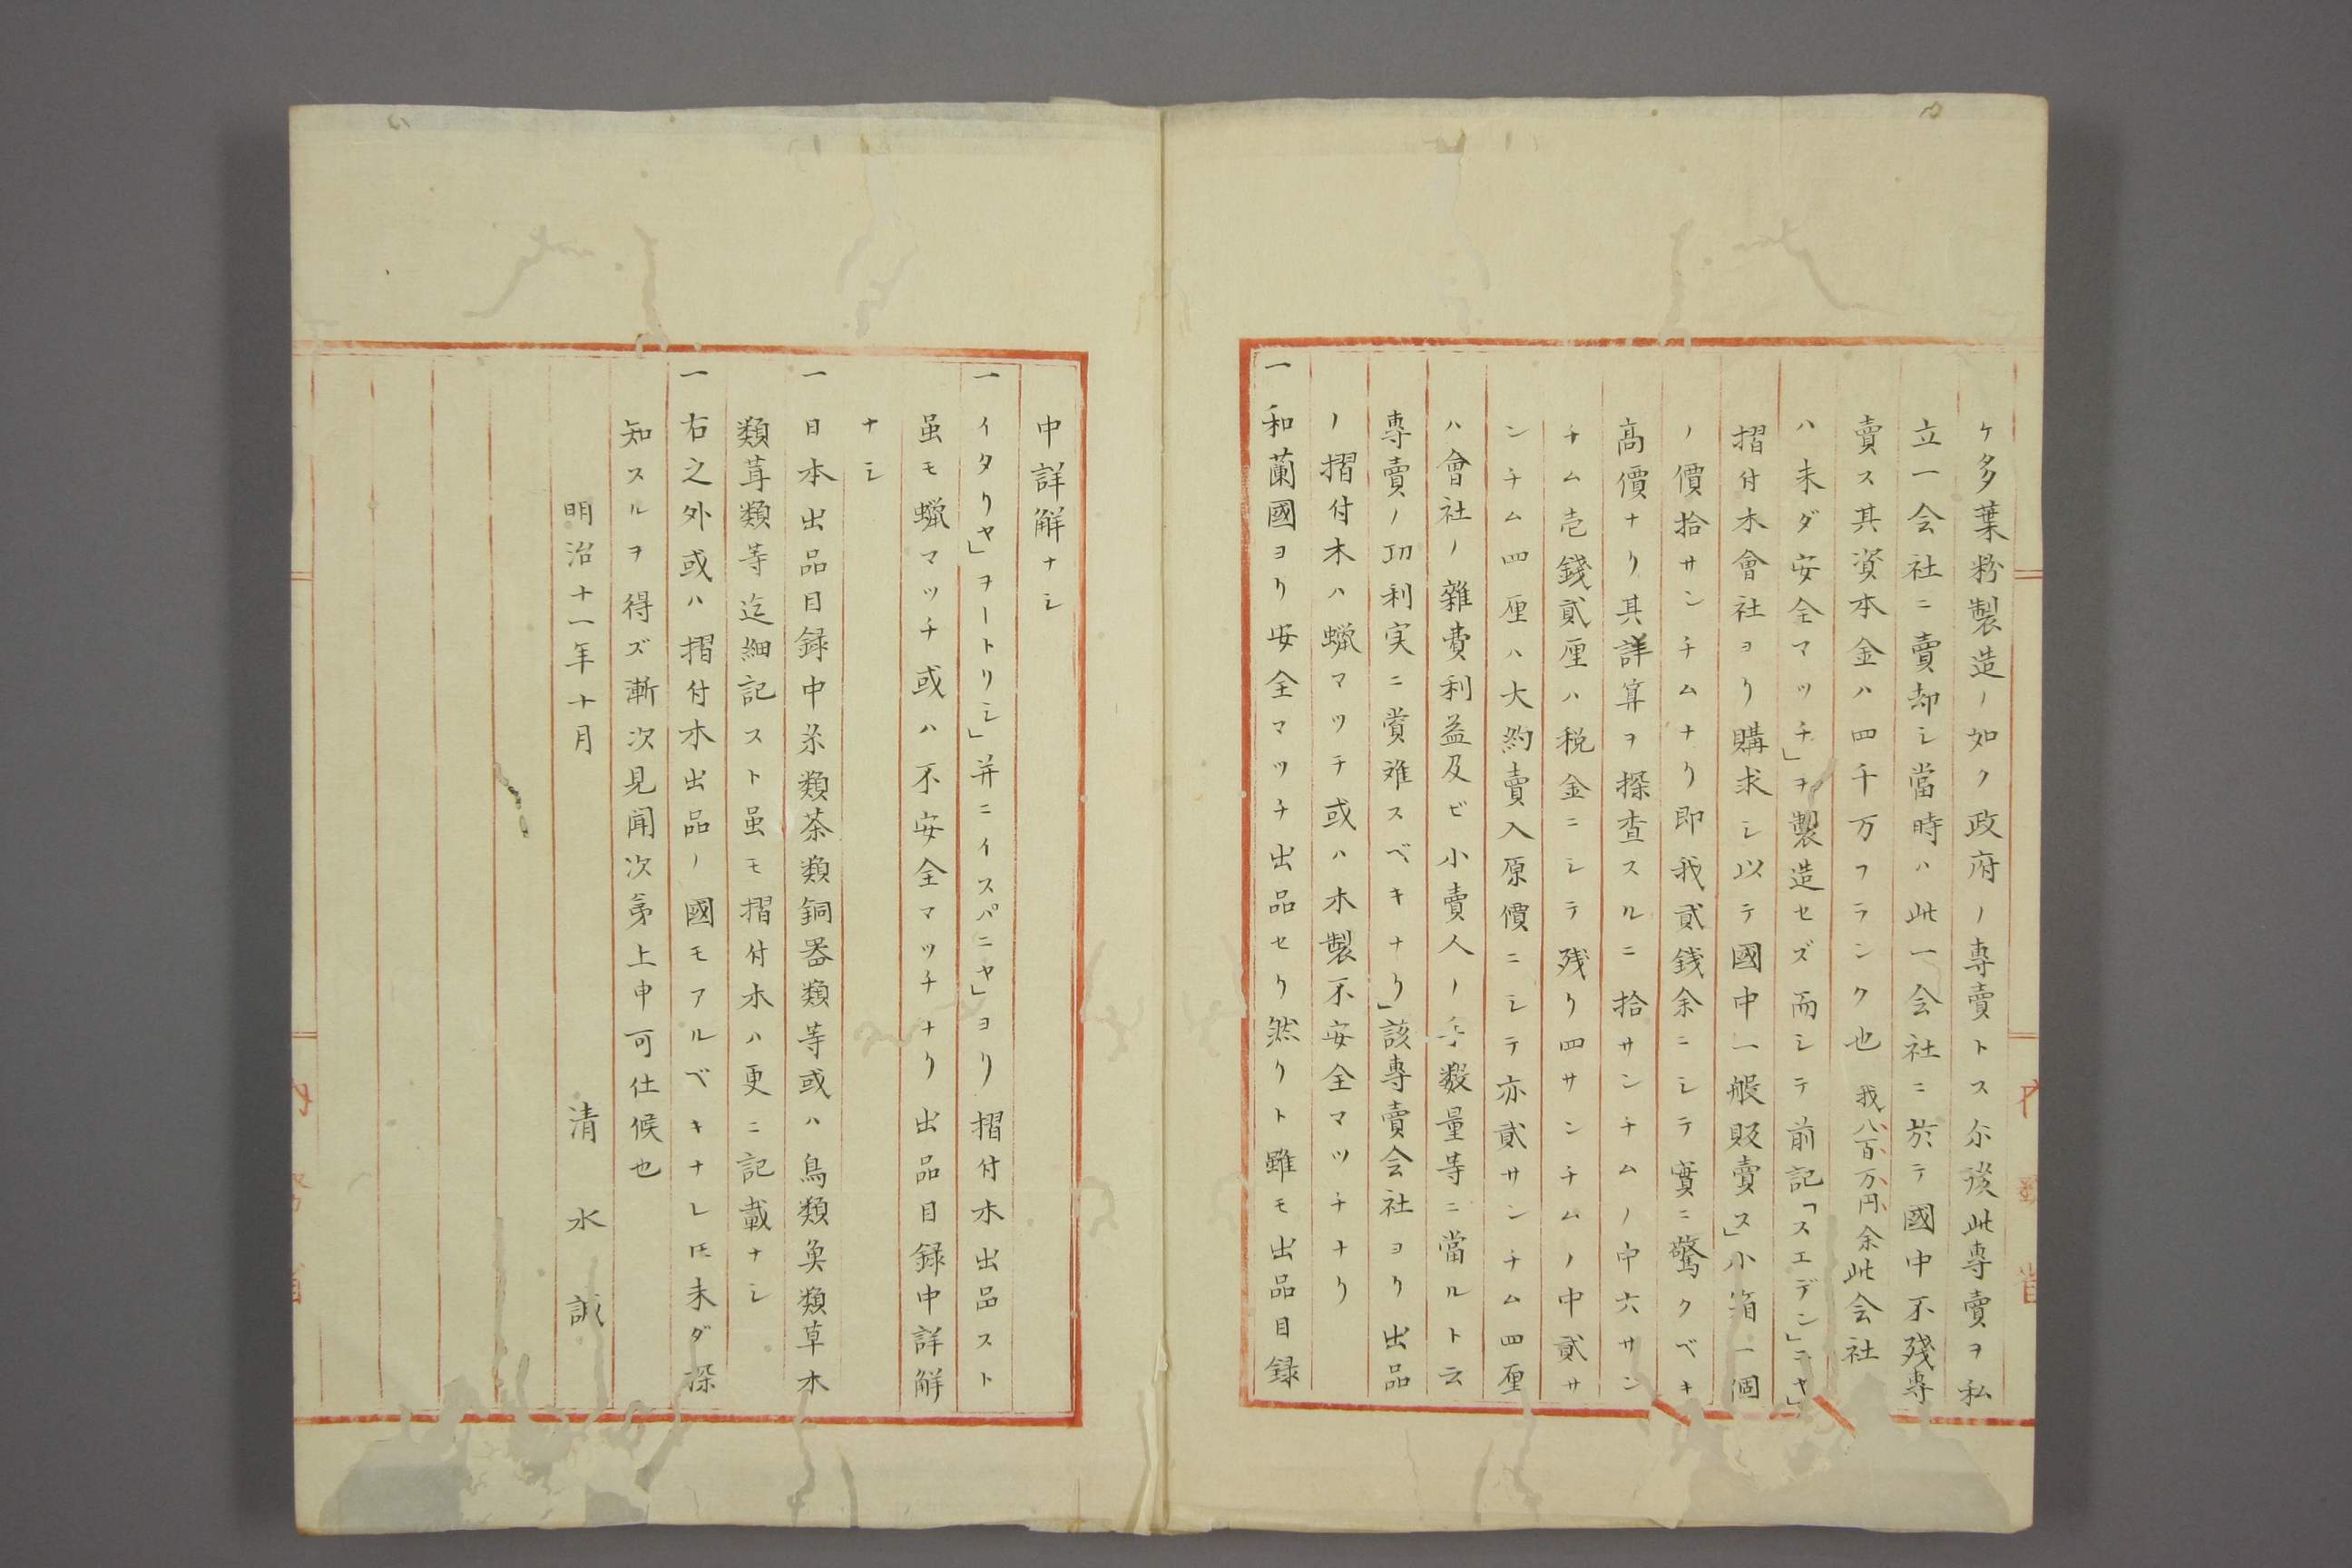 ケ多葉粉製造ノ如ク政府ノ專賣トス尓後此專賣ヲ私
立一会社ニ賣却シ當時ハ此一会社ニ於テ國中不殘専
賣ス其資本金ハ四千万フランク也我八百万円余此会社
ハ未ダ安全マッチ」ヲ製造セズ而シテ前記「スエデン」ニヤ」
摺付木會社ヨリ購求シ以テ國中一般販賣ス」小箱一個
ノ價拾サンチムナリ即我貳銭余ニシテ實ニ驚クベキ
高價ナリ其詳算ヲ探査スルニ拾サンチムノ中六サン
チム壱錢貳厘ハ税金ニシテ残リ四サンチムノ中貳サ
ンチム四厘ハ大約賣入原價ニシテ亦貳サンチム四厘
ハ會社ノ雜費利益及ビ小賣人ノ手数量等ニ當ルト云
專賣ノ功利実ニ賞难スベキナリ」該專賣会社ヨリ出品
ノ摺付木ハ蝋マツチ或ハ木製不安全マツチナリ
一和蘭國ヨリ安全マツチ出品セリ然リト雖モ出品目録
中詳解ナシ
一イタリヤ」ヲートリシ」并ニイスパニヤ」ヨリ摺付木出品スト
虽モ蠟マッチ或ハ不安全マッチナリ出品目録中詳解
ナシ
一日本出品目録中糸類茶類銅器類等或ハ鳥類魚類草木
類茸類等迄細記スト虽モ摺付木ハ更ニ記載ナシ
一右之外或ハ摺付木出品ノ國モアルベキナレ𪜈未ダ深
知スルヲ得ズ漸次見聞次第上申可仕候也
明治十一年十月
清水誠
内務省